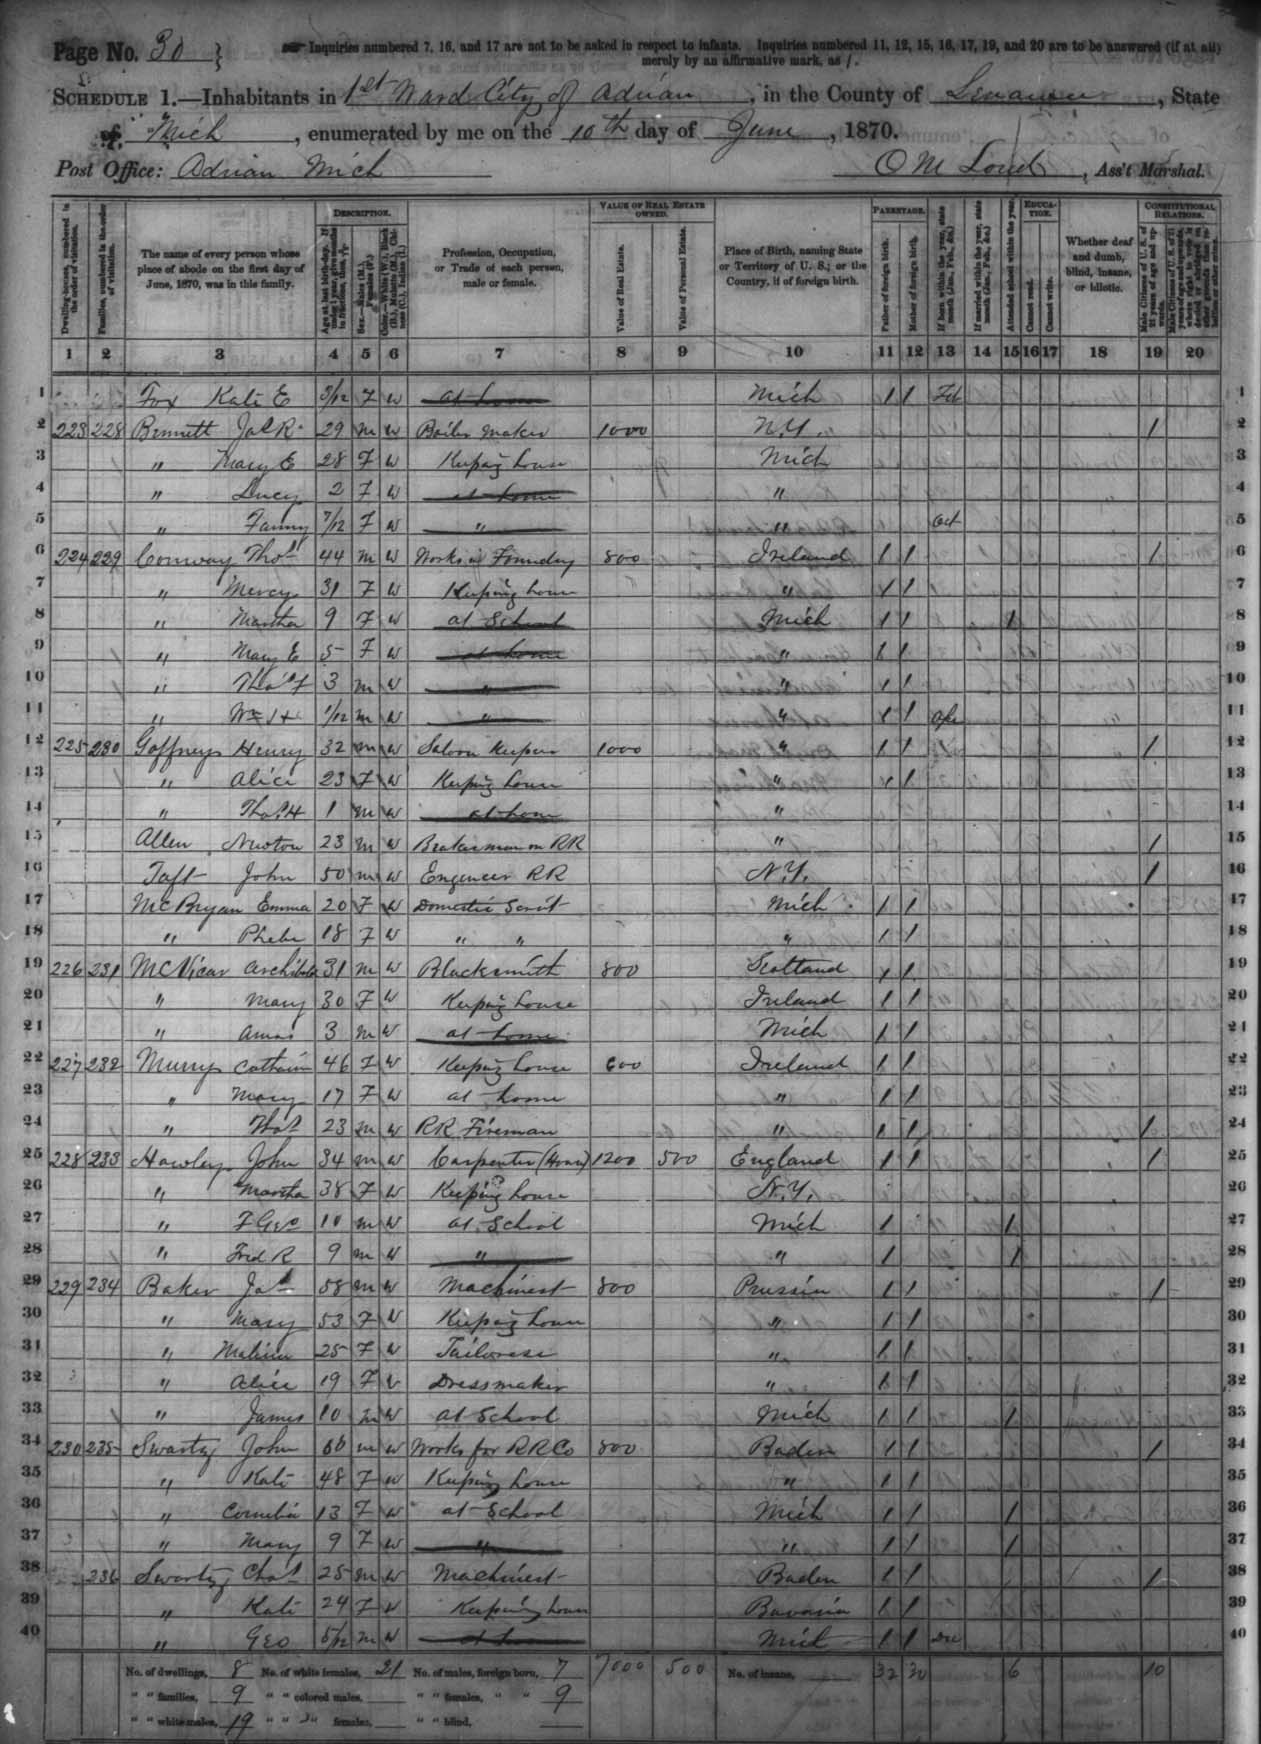 Page No. 30 } Inquiries numbered 7, 16, and 17 are not to be asked in respect to infants. Inquiries numbered 11, 12, 15, 16, 17, 19, and 20 are to be answered (if at all)
merely by an affirmative mark, as /.
SCHEDULE 1.—Inhabitants in 1st Ward City of Adrian, in the County of Lenawee, State
of Mich, enumerated by me on the 10th day of June, 1870.
Post Office: Adrian Mich O M Loud, Ass't Marshal.
Dwelling-houses, numbered in the order of visitation.
Families, numbered in the order of visitation.
The name of every person whose place of abode on the first day of June, 1870, was in this family.
DESCRIPTION.
Age at last birth-day. If under 1 year, give months in fractions, thus, 3/12
Sex.—Males (M.), Females (F.)
Color.—White (W.), Black (B.), Mulatto (M.), Chinese (C.), Indian (I.)
Profession, Occupation, or Trade of each person, male or female.
VALUE OF REAL ESTATE OWNED.
Value of Real Estate.
Value of Personal Estate.
Place of Birth, naming State or Territory of U. S.; or the Country, if of foreign birth.
PARENTAGE.
Father of foreign birth.
Mother of foreign birth.
If born within the year, state month (Jan., Feb., &c.)
If married within the year, state month (Jan., Feb., &c.)
EDUCATION.
Attended school within the year.
Cannot read.
Cannot write.
Whether deaf and dumb, blind, insane, or idiotic.
CONSTITUTIONAL RELATIONS.
Male Citizens of U. S. of 21 years of age and upwards.
Male Citizens of U. S. of 21 years of age and upwards, whose right to vote is denied or abridged on other grounds than rebellion or other crime.
1 2 3 4 5 6 7 8 9 10 11 12 13 14 15 16 17 18 19 20
1 Fox Kate E 3/12 F W at home Mich / / Feb 1
2 223 228 Bennett Jas R 29 M W Boiler Maker 1000 N.Y. / 2
3 " Mary E 28 F W Keeping house Mich 3
4 " Lucy 2 F W at home " 4
5 " Fanny 7/12 F W " " Oct 5
6 224 229 Conway Thos 44 M W Works in Foundry 800 Ireland / / / 6
7 " Mercy 31 F W Keeping house " / / 7
8 " Martha 9 F W at School Mich / / / 8
9 " Mary E 5 F W at home " / / 9
10 " Thos F 3 M W " " / / 10
11 " Wm H 1/12 M W " " / / Apr 11
12 225 230 Goffney Henry 32 M W Saloon Keeper 1000 " / / / 12
13 " Alice 23 F W Keeping house " / / 13
14 " Thos H 1 M W at home " 14
15 Allen Newton 23 M W Brakesman on RR " / 15
16 Taft John 50 M W Engineer RR N.Y. / 16
17 McBryan Emma 20 F W Domestic Servt Mich / / 17
18 " Phebe 18 F W " " " / / 18
19 226 231 McVicar Archibald 31 M W Blacksmith 800 Scotland / / 19
20 " Mary 30 F W Keeping house Ireland / / 20
21 " Amos 3 M W at home Mich / / 21
22 227 232 Murry Catharine 46 F W Keeping house 600 Ireland / / 22
23 " Mary 17 F W at home " / / 23
24 " Thos 23 M W RR Fireman " / / / 24
25 228 233 Hawley John 34 M W Carpenter (House) 1200 500 England / / / 25
26 " Martha 38 F W Keeping house N.Y. 26
27 " F Geo 10 M W at School Mich / / 27
28 " Fred R 9 M W " " / / 28
29 229 234 Baker Jas 58 M W Machinest 800 Prussia / / / 29
30 " Mary 53 F W Keeping house " / / 30
31 " Malina 25 F W Tailoress " / / 31
32 " Alice 19 F W Dressmaker " / / 32
33 " James 10 M W at School Mich / / / 33
34 230 235 Swarty John 66 M W Works for RR Co 800 Baden / / / 34
35 " Kate 48 F W Keeping house " / / 35
36 " Cornelia 13 F W at School Mich / / / 36
37 " Mary 9 F W " " / / / 37
38 236 Swarty Chas 25 M W Machinest Baden / / / 38
39 " Kate 24 F W Keeping house Bavaria / / 39
40 " Geo 5/12 M W at home Mich / / Dec 40
No. of dwellings, 8 No. of white females, 21 No. of males, foreign born, 7 7000 500 No. of insane, 32 30 6 10
" " families, 9 " " colored males, " " females, " " 9
" " white males, 19 " " " females, " " blind,